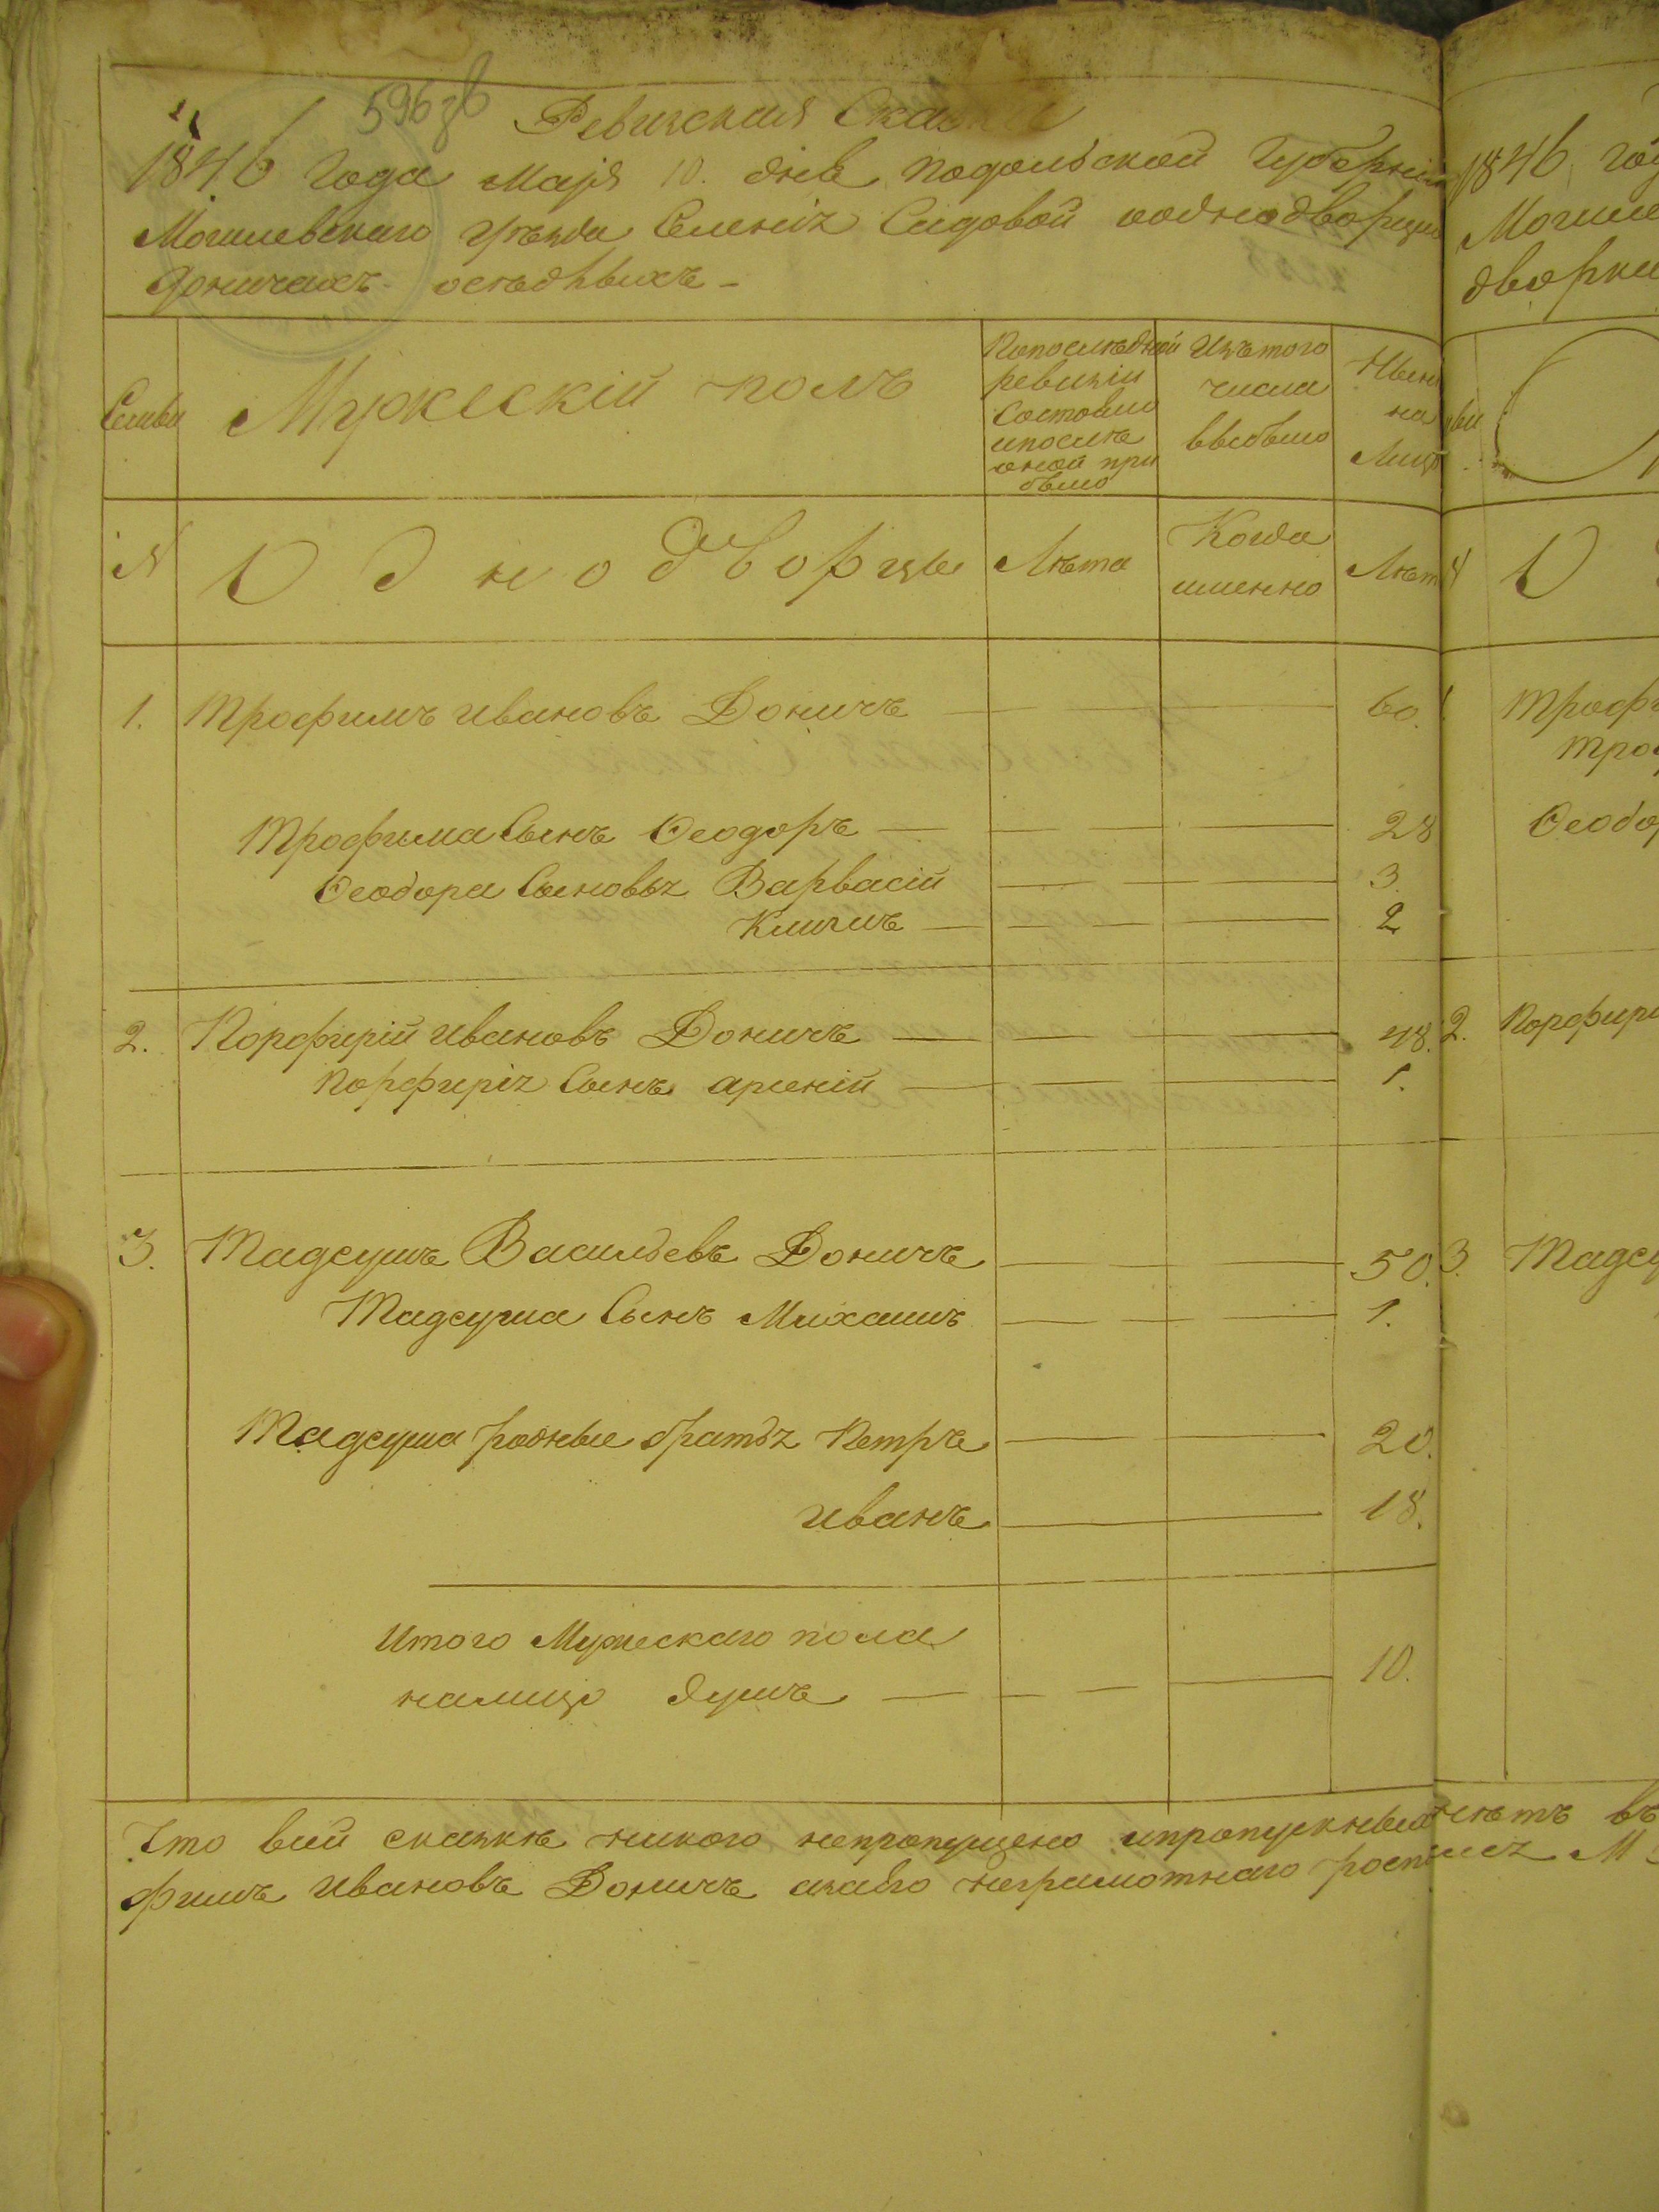 596
Ревизская Сказка
1846 Года Маія 10. дня Подольской Губерніи
Могилевскаго Уѣзда Селенія Садовой ооднодворцах
Доничахъ осѣдлыхъ -
Семьи
Мужескій полъ
Попослѣдней
ревизіи
Состояло
ипослѣ
оной при
было
Изътого
числа
выбыло
Нын
на
Лицо
N
Однодворцы
Лѣта
Когда
именно
Лѣт
1. Трофимъ Ивановъ Доничъ 60.
Трофима Сынъ Ѳеодоръ 28
Ѳеодора Сыновья Варвасій 3.
Климъ 2
2. Порфирій Ивановъ Доничъ 48.
Порфирія Сынъ Арсеній 1.
3. Тадеушъ Васильевъ Доничъ 50.
Тадеуша Сынъ Михаилъ 1.
Тадеуша родные братья Петръ 20.
Иванъ 18.
Итого Мужескаго пола
налицо душъ 10.
Что всей сказкѣ никого непропущено ипропускныхъ нѣтъ въ
фимъ Ивановъ Доничъ азаего неграмотнаго
1846 год
Могиле
дворки
О
1
Трофи
Троф
Ѳеодо
2. Порфири
3. Тадеу